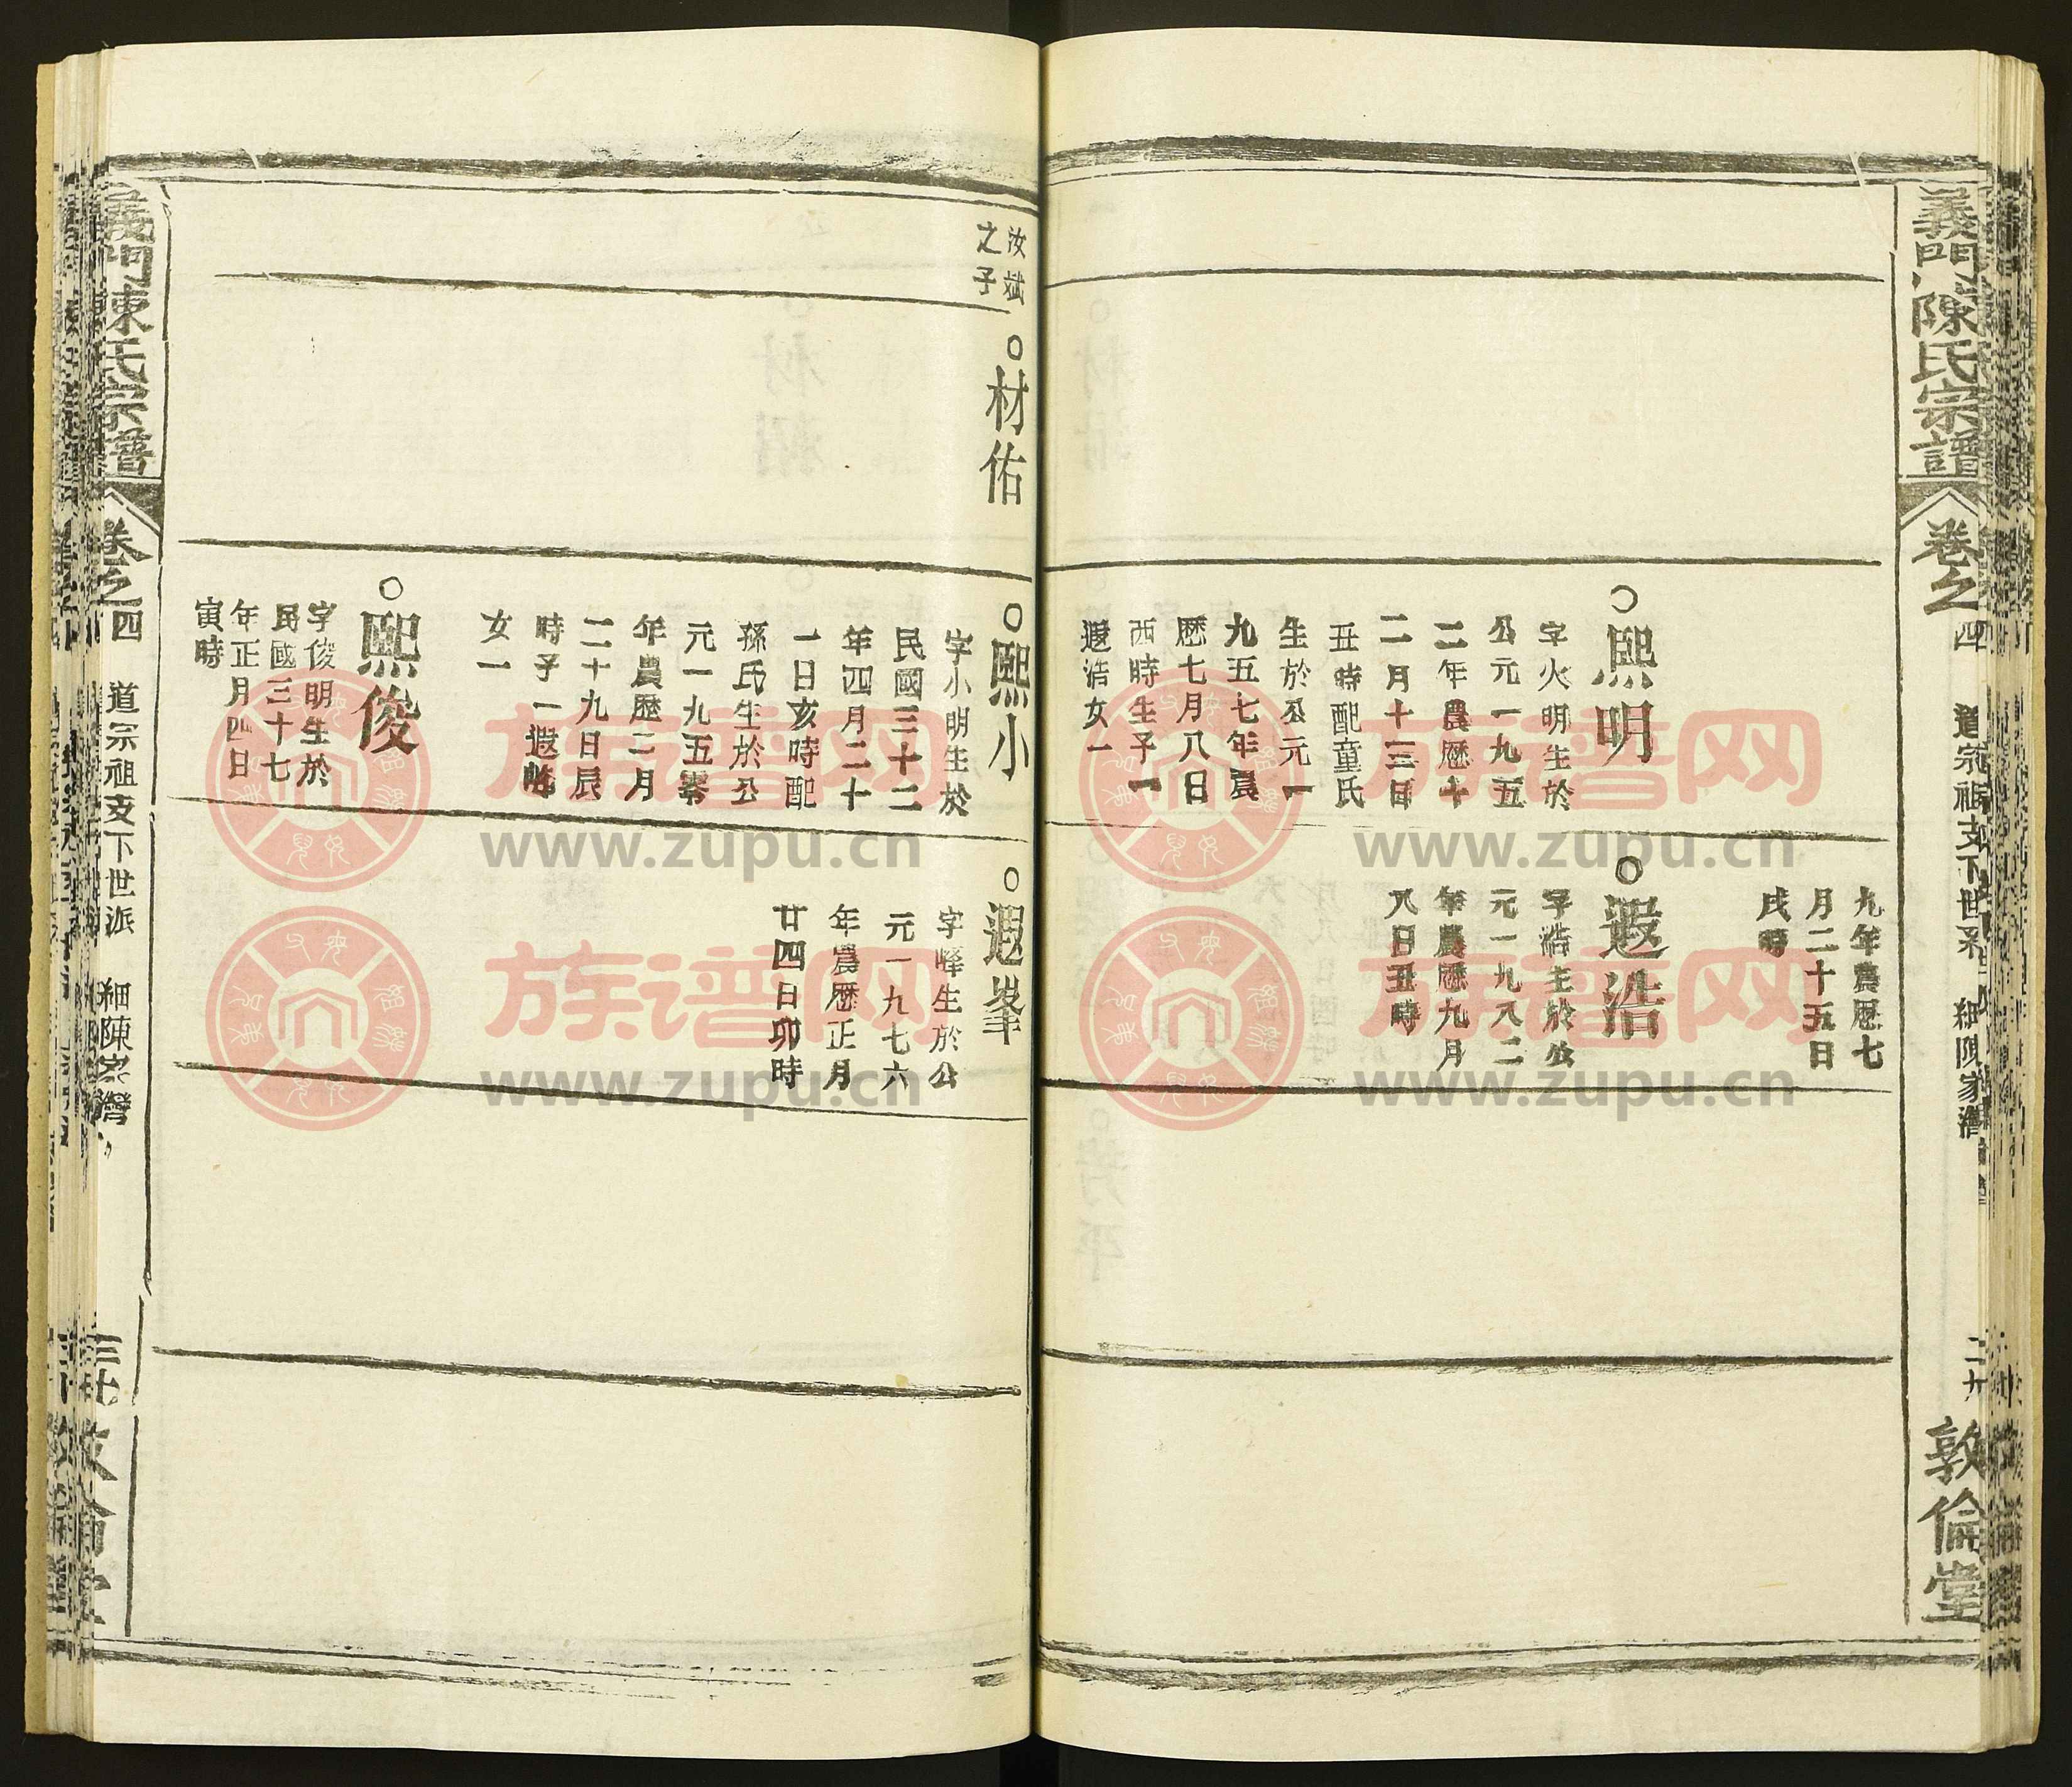 義門陳氏宗譜
卷之四
道宗祖支下世系
細陳家灣
二九
敦倫堂
熙明
字火明生於
公元一九五
二年農歷十
二月十三日
丑時配童氏
生於公元一
九五七年農
歷七月八日
酉時生子一
遐浩女一
九年農歷七
月二十五日
戌時
遐浩
字浩生於公
元一九八二
年農歷九月
八日丑時
汝斌
之子
材佑
熙小
字小明生於
民國三十二
年四月二十
一日亥時配
孫氏生於公
元一九五零
年農歷二月
二十九日辰
時子一遐峰
女一
熙俊
字俊明生於
民國三十七
年正月四日
寅時
遐峯
字峰生於公
元一九七六
年農歷正月
廿四日卯時
義門陳氏宗譜
卷之四
道宗祖支下世派
細陳家灣
族谱网
www.zupu.cn
族谱网
www.zupu.cn
族谱网
www.zupu.cn
族谱网
www.zupu.cn